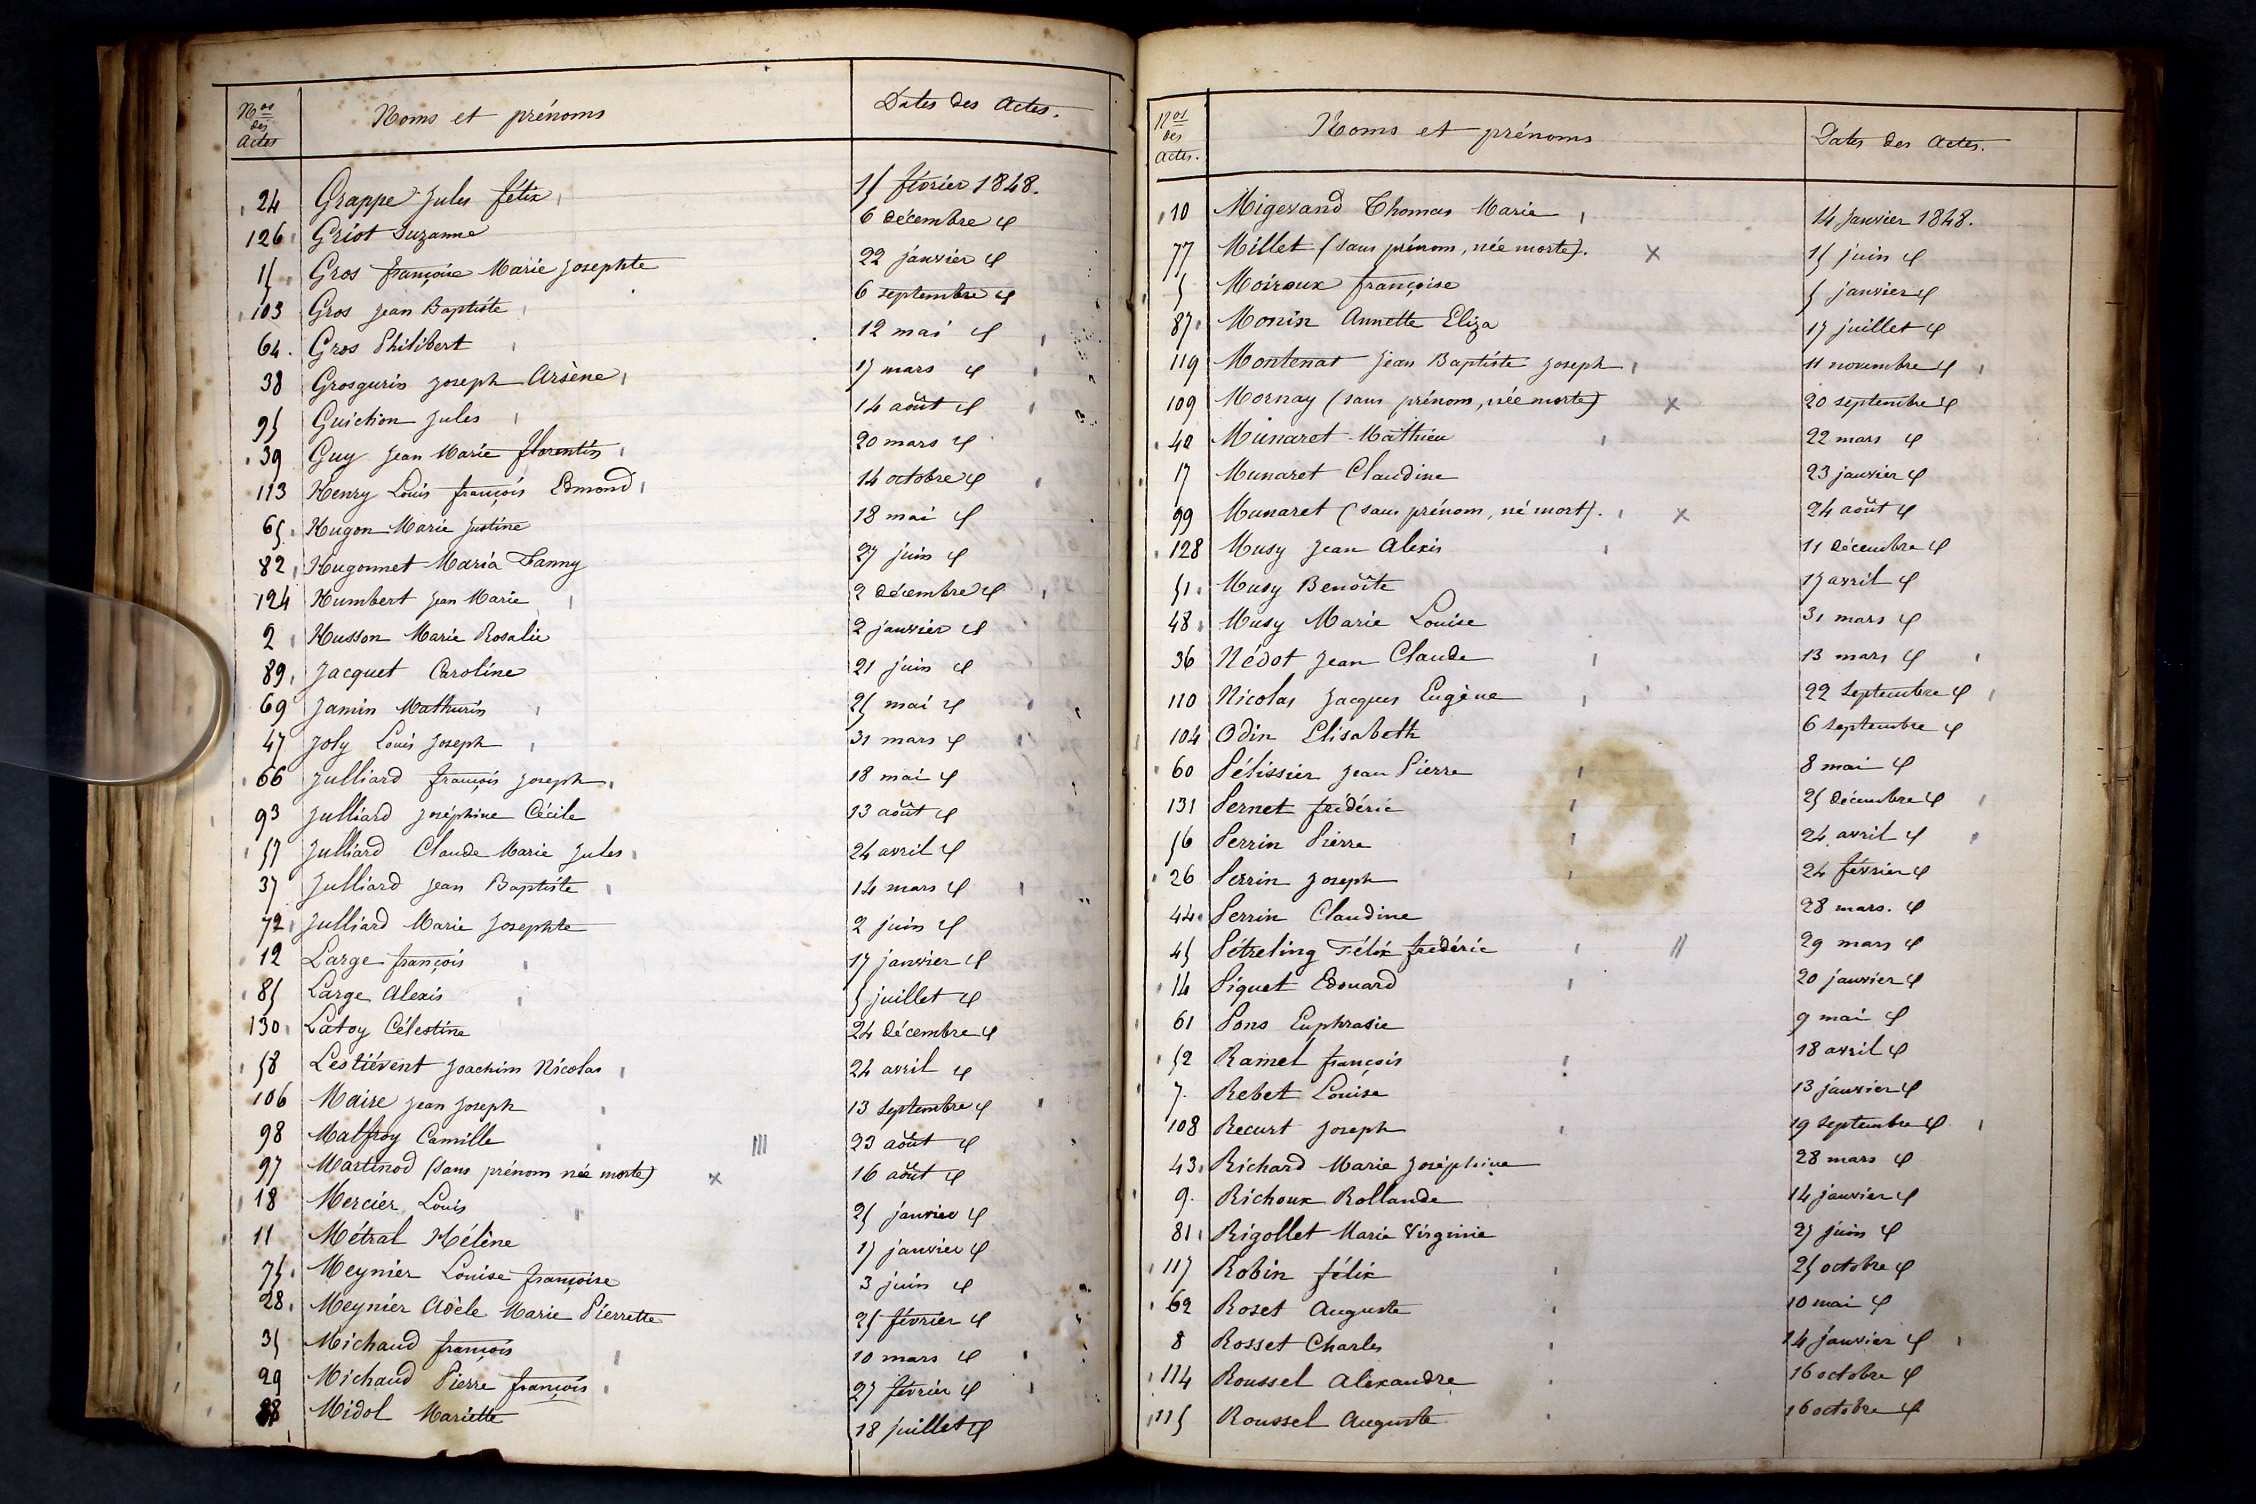 Nos des Actes Noms et prénoms Dates des Actes.
24 Grappe Jules félix 15 février 1848.
126 Griot Suzanne 6 décembre 4
15 Gros françoise Marie Josephte 22 janvier 4
103 Gros Jean Baptiste 6 septembre 4
64. Gros Philibert 12 mai 4
38 Grosgurin Joseph Arsène 17 mars 4
95 Guichon Jules 14 août 4
39 Guy Jean Marie florentin 20 mars 4
113 Henry Louis françois Edmond 14 octobre 4
65. Hugon Marie Justine 18 mai 4
82 Hugonnet Maria Fanny 27 juin 4
124 Humbert Jean Marie 2 décembre 4
2 Husson Marie Rosalie 2 janvier 4
89 Jacquet Caroline 21 juin 4
69 Jamin Mathurin 25 mai 4
47 Joly Louis Joseph 31 mars 4
66 Julliard françois Joseph 18 mai 4
93 Julliard Joséphine Cécile 13 août 4
57 Julliard Claude Marie Jules 24 avril 4
37 Julliard Jean Baptiste 14 mars 4
72 Julliard Marie Josephte 2 juin 4
12 Large françois 17 janvier 4
85 Large Alexis 5 juillet 4
130 Latoy Célestine 24 décembre 4
58 Lestiévent Joachim Nicolas 24 avril 4
106 Maire Jean Joseph 13 septembre 4
98 Malfroy Camille 23 août 4
97 Martinod (sans prénom née morte) x 16 août 4
18 Mercier Louis 25 janvier 4
11 Métral Hélène 15 janvier 4
75 Meynier Louise françoise 3 juin 4
28. Meynier Adèle Marie Pierrette 25 février 4
35 Michaud françois 10 mars 4
29 Michaud Pierre françois 27 février 4
88 Midol Mariette 18 juillet 4
Nos des Actes. Noms et prénoms Dates des Actes.
10 Migerand Thomas Marie 14 janvier 1848.
77 Millet (sans prénom, née morte). x 15 juin 4
5 Moiroux françoise 5 janvier 4
87 Monin Annette Eliza 17 juillet 4
119 Montenat Jean Baptiste Joseph 11 novembre 4
109 Mornay (sans prénom, née morte) x 20 septembre 4
40 Munaret Mathieu 22 mars 4
17 Munaret Claudine 23 janvier 4
99 Munaret (sans prénom, né mort). x 24 août 4
128 Musy Jean Alexis 11 décembre 4
51. Musy Benoîte 17 avril 4
48 Musy Marie Louise 31 mars 4
36 Nédot Jean Claude 13 mars 4
110 Nicolas Jacques Eugène 22 septembre 4
104 Odin Elisabeth 6 septembre 4
60 Pélissier Jean Pierre 8 mai 4
131 Pernet frédéric 25 décembre 4
56 Perrin Pierre 24 avril 4
26 Perrin Joseph 24 février 4
44 Perrin Claudine 28 mars. 4
45 Pétreling Félix frédéric 29 mars 4
14 Piquet Edouard 20 janvier 4
61 Pons Euphrasie 9 mai 4
52 Ramel françois 18 avril 4
7. Rebet Louise 13 janvier 4
108 Recurt Joseph 19 septembre 4
43 Richard Marie Joséphine 28 mars 4
9. Richoux Rollande 14 janvier 4
81 Rigollet Marie Virginie 27 juin 4
117 Robin félix 25 octobre 4
62 Roset Auguste 10 mai 4
8 Rosset Charles 14 janvier 4
114 Roussel Alexandre 16 octobre 4
115 Roussel Auguste 16 octobre 4